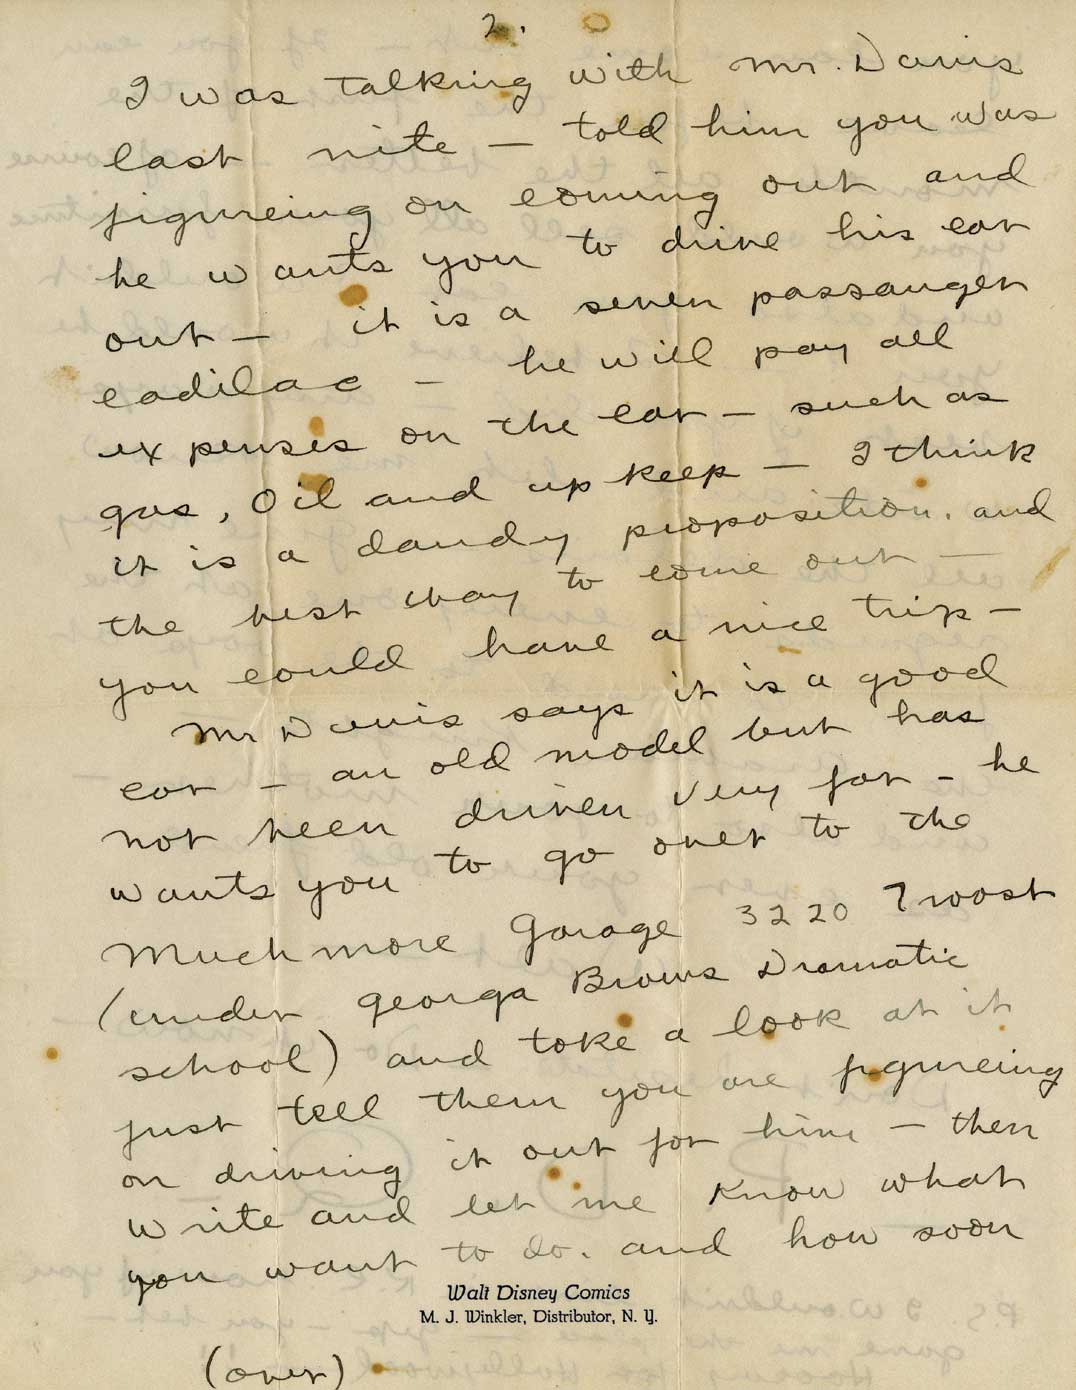 2.
I was talking with Mr. Davis
last nite — told him you was
figureing on coming out and
he wants you to drive his car
out — it is a seven passanger
cadilac — he will pay all
expenses on the car — such as
gas, Oil and up keep — I think
it is a dandy proposition. and
the best way to come out —
you could have a nice trip —
Mr Davis says it is a good
car — an old model but has
not been driven very far — he
wants you to go over to the
Muchmore Garage 3220 Troost
(under Georga Browns Dramatic
school) and take a look at it
just tell them you are figureing
on driving it out for him — then
write and let me know what
you want to do. and how soon
Walt Disney Comics
M. J. Winkler, Distributor, N. Y.
(over)